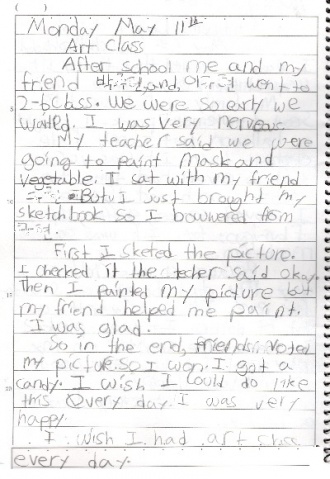 ( )
Monday May 11th
Art Class
After school me and my
friend and, went to
2-6 class. We were so earty we
waited. I was very nervous.
My teacher said we were
going to paint Mask and
vegetable. I sat with my friend
But I just brought my
sketchbook so I bowwered from
First I sketed the picture.
I checked it the techer said okay.
Then I painted my picture but
my friend helped me paint.
I was glad.
So in the end, friends voted
my picture. So I won. I got a
candy. I wish I could do like
this every day. I was very
happy.
I wish I had art class
every day.
5
10
15
20